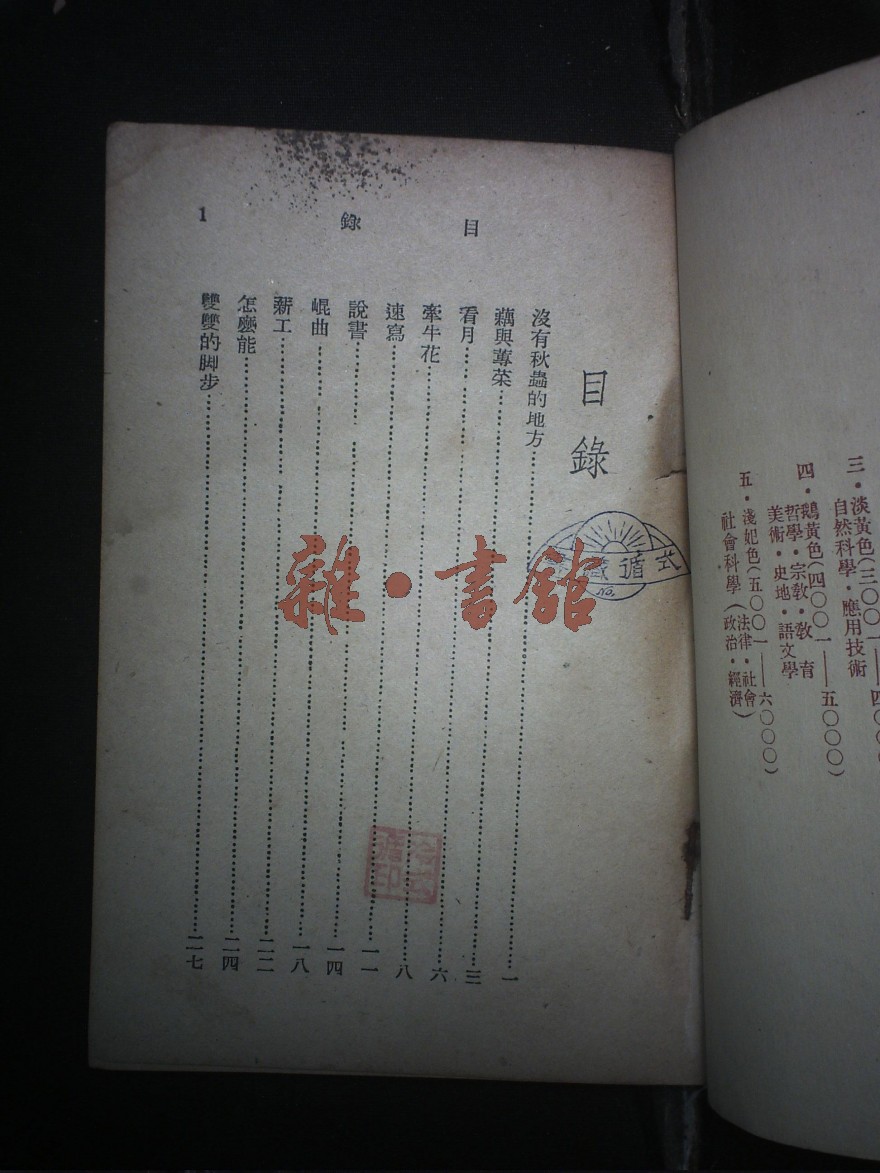 三・淡黃色(三〇〇一——四〇〇
自然科學・應用技術
四・鵝黃色(四〇〇一——五〇〇〇)
哲學・宗敎・敎育
美術・史地・語文學
五・淺妃色(五〇〇一——六〇〇〇)
社會科學(法律・社會
政治・經濟)
目錄
1
目錄
沒有秋蟲的地方……一
藕與蓴菜……三
看月……六
牽牛花……八
速寫……一一
說書……一四
崐曲……一八
薪工……二二
怎麼能……二四
雙雙的脚步……二七
No.
雜・書館